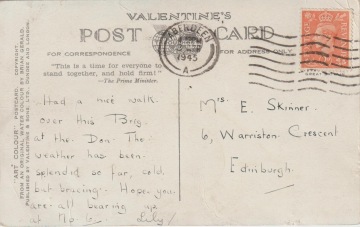 VALENTINE'S
POST CARD
FOR CORRESPONDENCE
FOR ADDRESS ONLY
"This is a time for everyone to
stand together, and hold firm!"
—The Prime Minister.
"ART COLOUR" POSTCARD. COPYRIGHT.
FROM AN ORIGINAL WATER COLOUR BY BRIAN GERALD.
PUBLISHED BY VALENTINE & SONS, LTD., DUNDEE AND LONDON.
ABERDEEN
1943
A
Had a nice walk
over this Brig.
at the Don. The
weather has been
splendid so far, cold
but bracing. Hope you
are all bearing up
at No 6. Lily/
Mrs E. Skinner.
6, Warriston Crescent
Edinburgh.